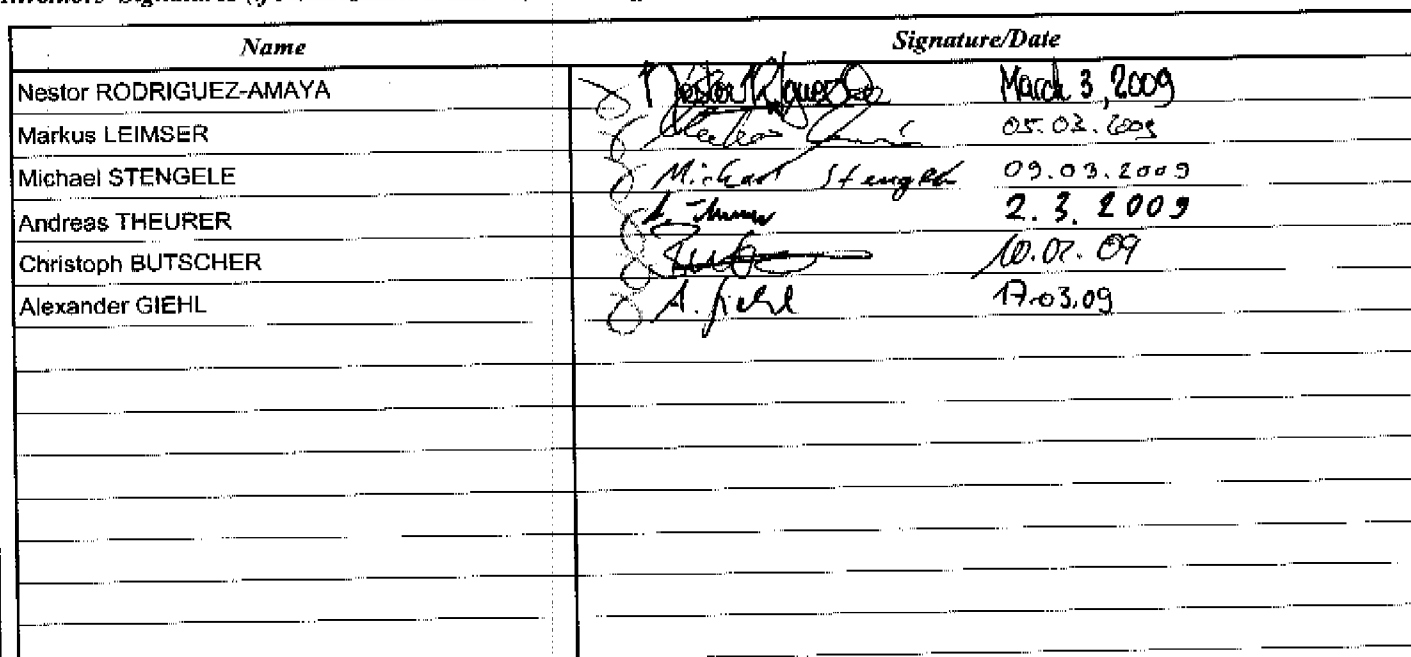 Name Signature/Date
Nestor RODRIGUEZ-AMAYA March 3, 2009
Markus LEIMSER 05.03.2009
Michael STENGELE Michael Stengele 09.03.2009
Andreas THEURER 2.3.2009
Christoph BUTSCHER 09
Alexander GIEHL A. Giehl 17.03.09